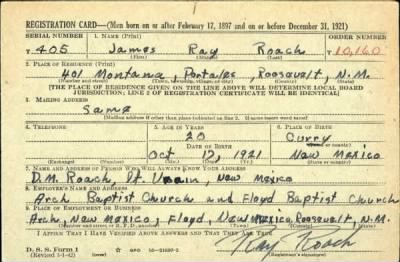 REGISTRATION CARD—(Men born on or after February 17, 1897 and on or before December 31, 1921)
SERIAL NUMBER 1. NAME (Print) ORDER NUMBER
T 405 James Ray Roach T10,160
2. PLACE OF RESIDENCE (Print)
401 Montana, Portales, Roosevelt, N.M.
[THE PLACE OF RESIDENCE GIVEN ON THE LINE ABOVE WILL DETERMINE LOCAL BOARD
JURISDICTION; LINE 2 OF REGISTRATION CERTIFICATE WILL BE IDENTICAL]
3. MAILING ADDRESS
Same
[Mailing address if other than place indicated on line 2. If same insert word same]
4. TELEPHONE 5. AGE IN YEARS 6. PLACE OF BIRTH
20 Curry
DATE OF BIRTH
Oct 12, 1921 New Mexico
(Exchange) (Number) (Mo.) (Day) (Yr.) (State or country)
7. NAME AND ADDRESS OF PERSON WHO WILL ALWAYS KNOW YOUR ADDRESS
D.M. Roach, St. Vrain, New Mexico
8. EMPLOYER'S NAME AND ADDRESS
Arch Baptist Church and Floyd Baptist Church
9. PLACE OF EMPLOYMENT OR BUSINESS
Arch, New Mexico, Floyd, New Mexico, Roosevelt, N.M.
I AFFIRM THAT I HAVE VERIFIED ABOVE ANSWERS AND THAT THEY ARE TRUE.
D. S. S. Form 1 GPO
(Revised 1-1-42) Ray Roach